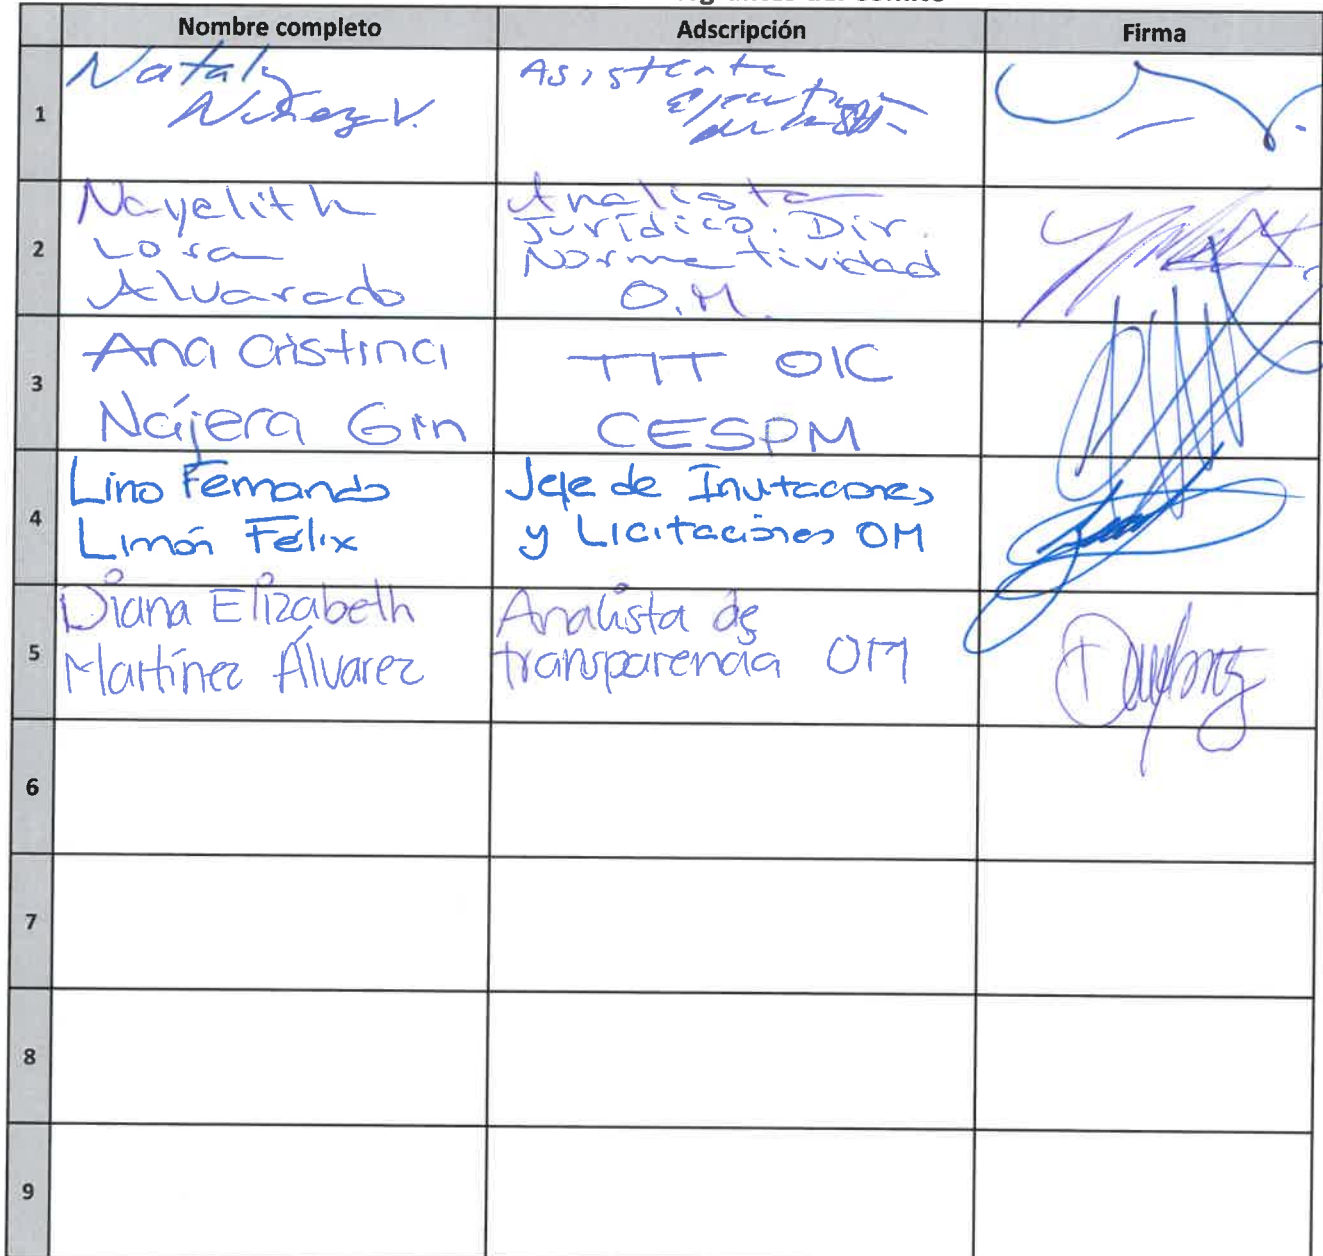 Nombre completo Adscripción Firma
1
Nataly
Nuñez V.
Asistente
Ejecutiva
2
Nayelith
Lora
Alvarado
Analista
Jurídico. Dir.
Normatividad
O.M.
3
Ana Cristina
Nájera Gin
TIT OIC
CESPM
4
Lino Fernando
Limón Félix
Jefe de Invitaciones
y Licitaciones OM
5
Diana Elizabeth
Martínez Álvarez
Analista de
transparencia OM
6
7
8
9